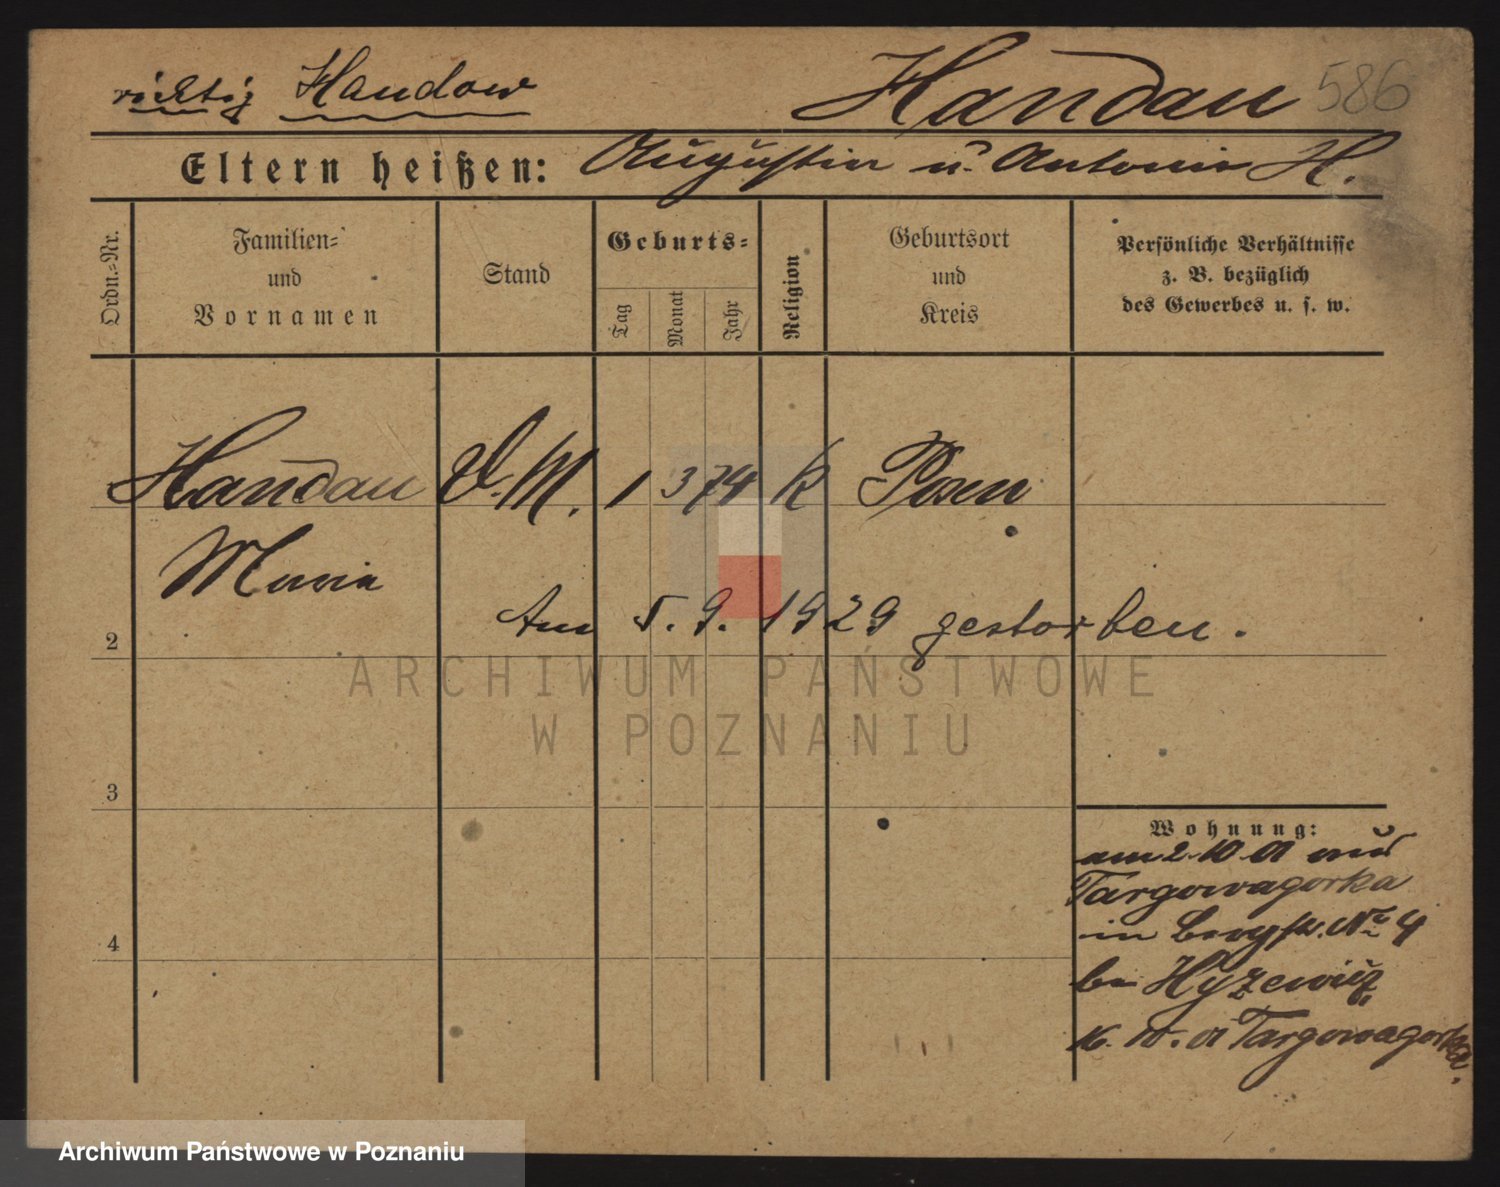 richtig Handow
Handau 586
Eltern heißen: Augustin u. Antonie H.
Ordn.-Nr.
Familien-
und
Vornamen
Stand
Geburts-
Tag
Monat
Jahr
Religion
Geburtsort
und
Kreis
Persönliche Verhältnisse
z. B. bezüglich
des Gewerbes u. s. w.
Handau D. M. 1 3 74 K Posen
Maria
Am 5. 9. 1929 gestorben.
2
ARCHIWUM PAŃSTWOWE
W POZNANIU
3
Wohnung:
am 2.10.01 aus
Targowagorka
in Bergstr. No 4
4
bei Hyzewicz
16. 10. 01 Targowagorka.
Archiwum Państwowe w Poznaniu